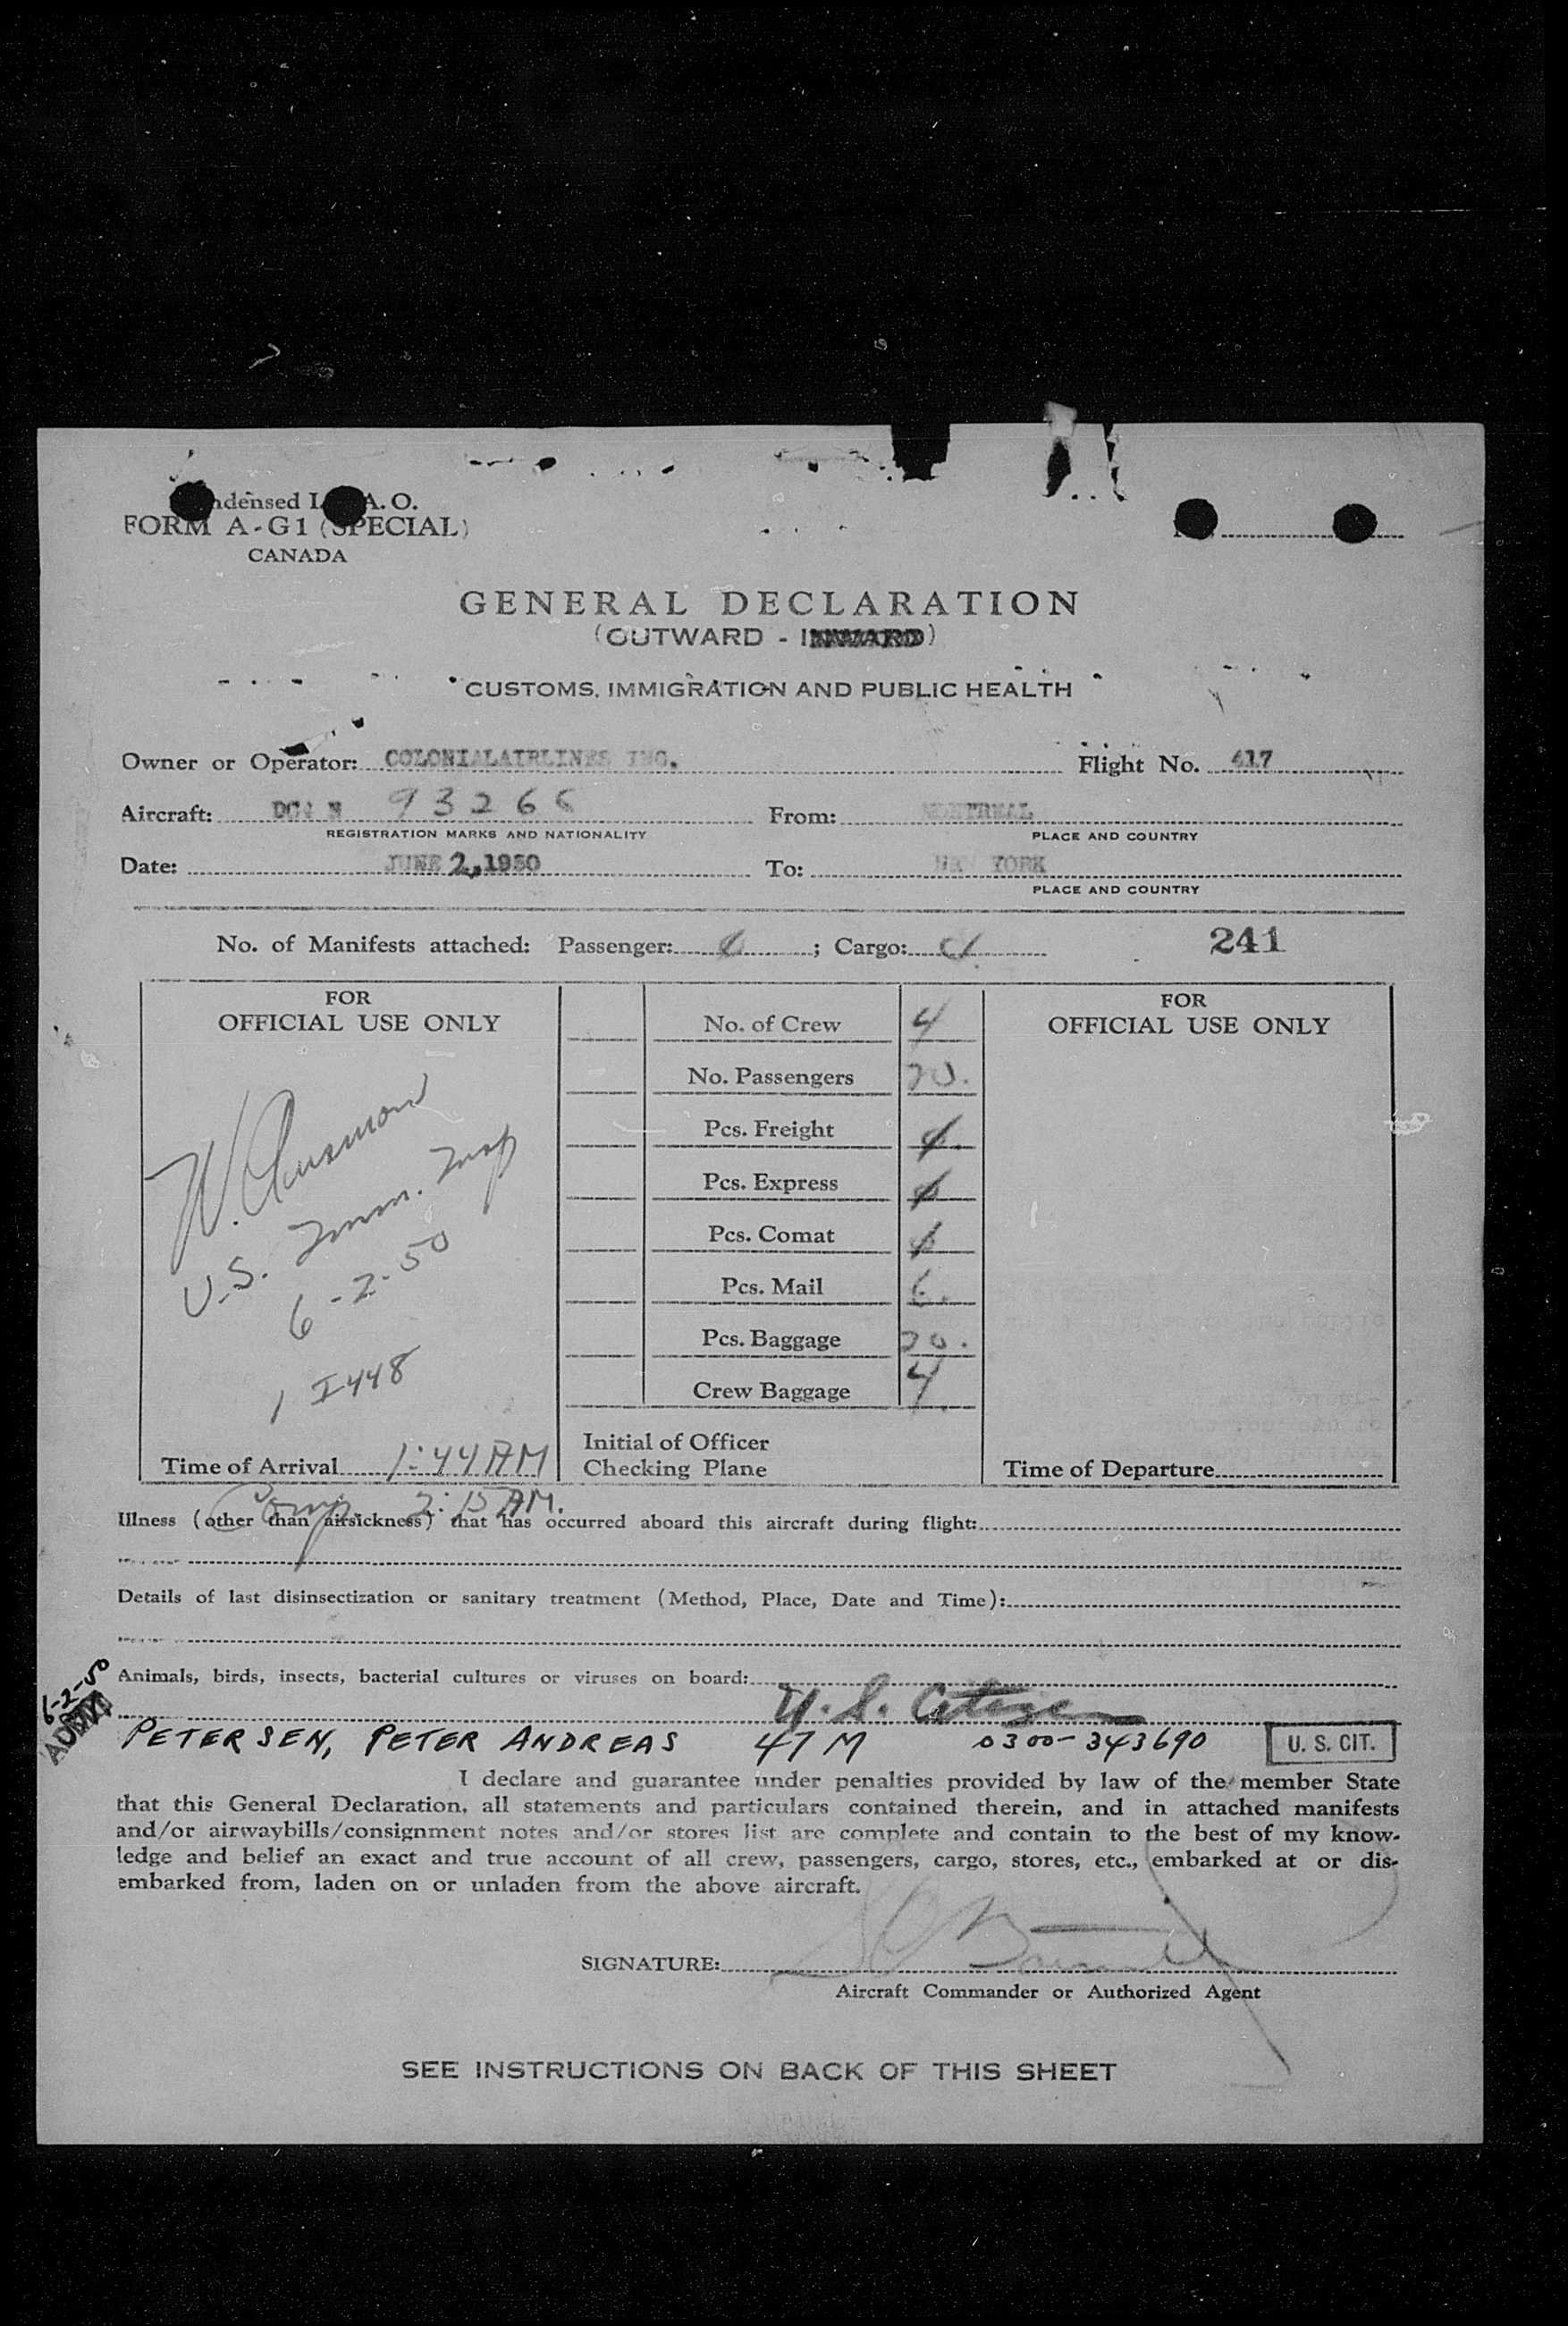 ndensed I. A. O.
FORM A-G1 (SPECIAL)
CANADA
GENERAL DECLARATION
(OUTWARD - INWARD)
CUSTOMS, IMMIGRATION AND PUBLIC HEALTH
Owner or Operator: COLONIALAIRLINES INC. Flight No. 417
Aircraft: DC4 N 93266 From: MONTREAL
REGISTRATION MARKS AND NATIONALITY PLACE AND COUNTRY
Date: JUNE 2,1950 To: NEW YORK
PLACE AND COUNTRY
No. of Manifests attached: Passenger: ; Cargo: 241
FOR
OFFICIAL USE ONLY
U.S. Imm. Insp
6-2-50
1 I-448
Time of Arrival 1:44 AM
No. of Crew 4
No. Passengers 20.
Pcs. Freight
Pcs. Express
Pcs. Comat
Pcs. Mail 6.
Pcs. Baggage 20.
Crew Baggage 4
Initial of Officer
Checking Plane
FOR
OFFICIAL USE ONLY
Time of Departure
Comp. 2:15 AM.
Illness (other than airsickness) that has occurred aboard this aircraft during flight:
Details of last disinsectization or sanitary treatment (Method, Place, Date and Time):
Animals, birds, insects, bacterial cultures or viruses on board:
U.S. Citizen
6-2-50
PETERSEN, PETER ANDREAS 47 M 0300-343690 U. S. CIT.
I declare and guarantee under penalties provided by law of the member State
that this General Declaration, all statements and particulars contained therein, and in attached manifests
and/or airwaybills/consignment notes and/or stores list are complete and contain to the best of my know-
ledge and belief an exact and true account of all crew, passengers, cargo, stores, etc., embarked at or dis-
embarked from, laden on or unladen from the above aircraft.
SIGNATURE:
Aircraft Commander or Authorized Agent
SEE INSTRUCTIONS ON BACK OF THIS SHEET